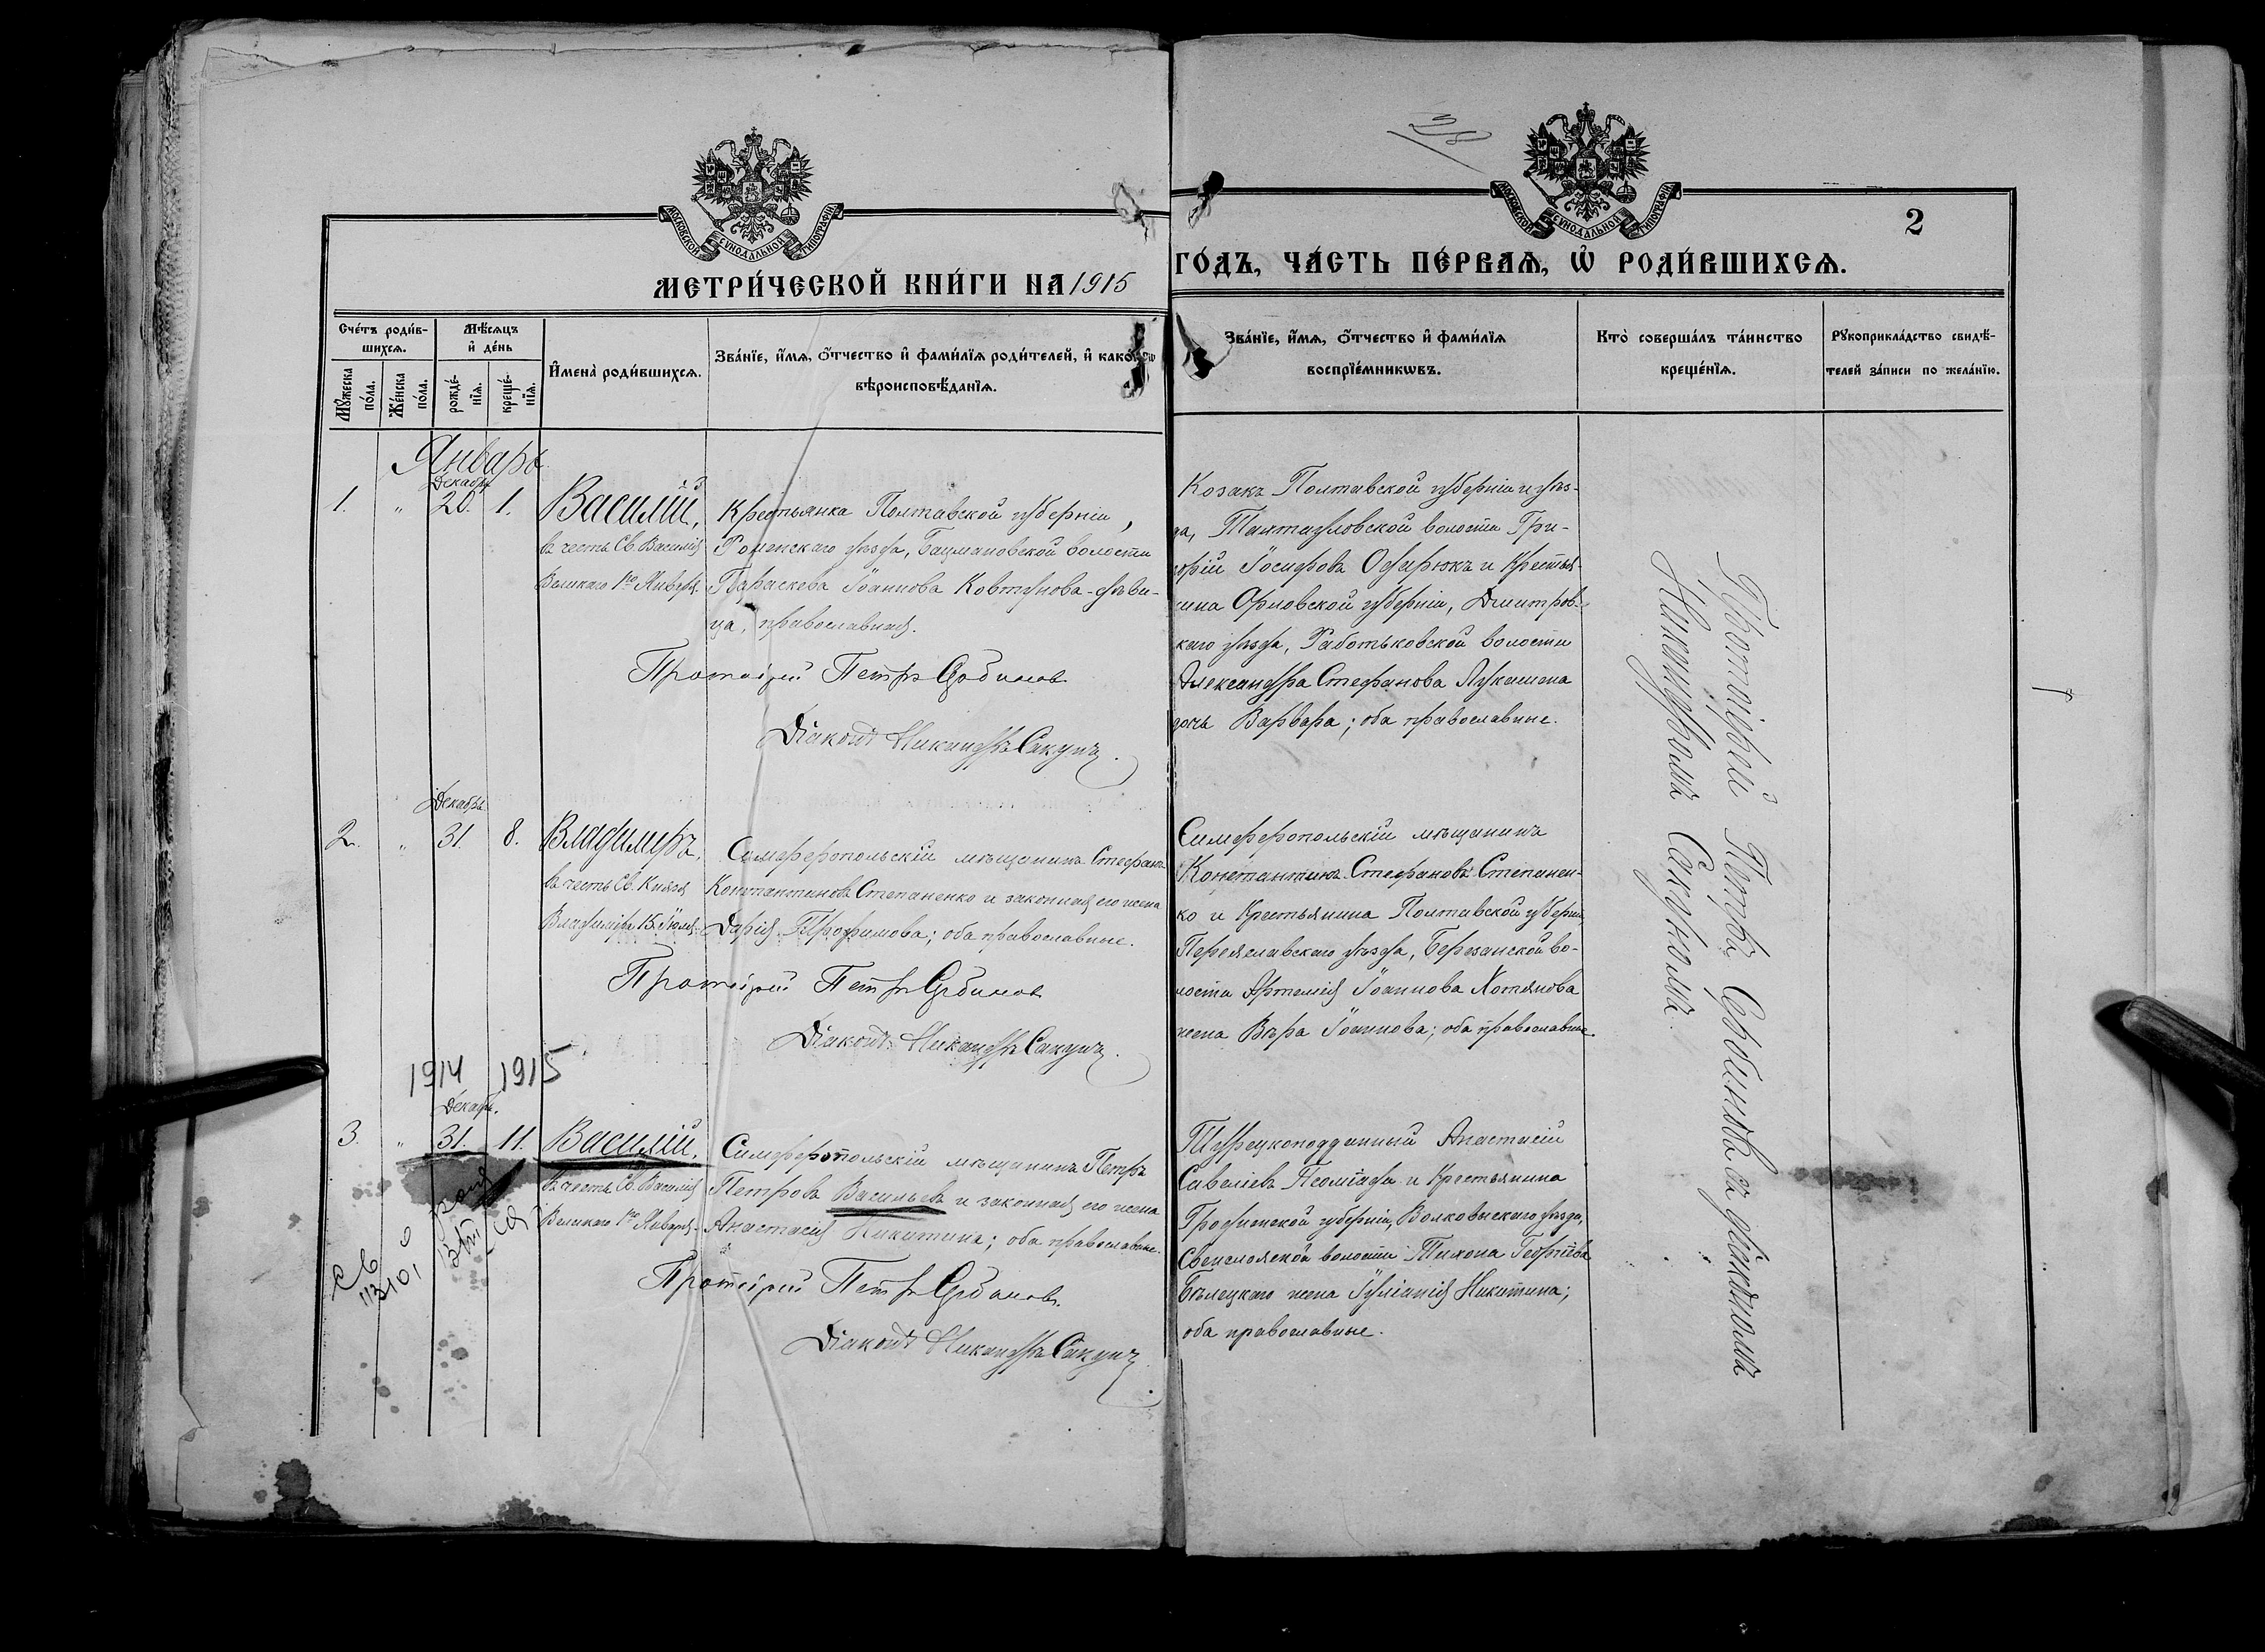 28
МОСКОВСКОЙ СУНОДАЛЬНОЙ ТИПОГРАФІИ
МОСКОВСКОЙ СУНОДАЛЬНОЙ ТИПОГРАФІИ
2
МЕТРИ́ЧЕСКОЙ КНИ́ГИ НА 1915
ГО́ДЪ, ЧА́СТЬ ПЕ́РВАѦ, Ѡ҆ РОДИ́ВШИХСѦ.
Сче́тъ роди́в-
шихсѧ.
Мѣ́сѧцъ
и҆ де́нь
Мꙋ́жеска
по́ла.
Же́нска
по́ла.
рожде́-
нїѧ.
креще́-
нїѧ.
И҆мена̀ роди́вшихсѧ.
Зва́нїе, и҆́мѧ, ѻ҆́тчество и҆ фами́лїѧ роди́телей, и҆ како́гѡ
вѣроисповѣ́данїѧ.
Зва́нїе, и҆́мѧ, ѻ҆́тчество и҆ фами́лїѧ
воспрїе́мникѡвъ.
Кто̀ соверша́лъ та́инство
креще́нїѧ.
Рꙋкоприкла́дство свидѣ́-
телей за́писи по жела́нїю.
Январь
Декабр.
1. " 20. 1. Василій,
въ честь Св. Василія
Великаго 1го Января.
Крестьянка Полтавской губерніи,
Роменскаго уѣзда, Бацмановской волости
Параскева Іоаннова Ковтунова-дѣви-
ца, православная.
Протоіерей Петръ Сербиновъ
Діаконъ Никандръ Сакунъ.
Козакъ Полтавской губерніи и уѣз-
да, Тахтауловской волости Гри-
горій Іосифовъ Офирюкъ и Крестья-
нина Орловской губерніи, Дмитров-
скаго уѣзда, Работьковской волости
Александра Стефанова Лукашева
дочь Варвара; оба православные.
Декабрь
2. " 31. 8. Владимиръ,
въ честь Св. Князя
Владиміра 15 Іюля.
Симферопольскій мѣщанинъ Стефанъ
Константиновъ Степаненко и законная его жена
Дарія Трофимова; оба православные.
Протоіерей Петръ Сербиновъ
Діаконъ Никандръ Сакунъ.
Симферопольскій мѣщанинъ
Константинъ Стефановъ Степанен-
ко и Крестьянина Полтавской губерніи
Переяславскаго уѣзда, Березанской во-
лости Артемія Іоаннова Хотянова
жена Вѣра Іоаннова; оба православные.
1914 1915
Декабр.
3. " 31. 11. Василій,
въ честь Св. Василія
Великаго 1го Января.
Симферопольскій мѣщанинъ Петръ
Петровъ Васильевъ и законная его жена
Анастасія Никитина; оба православные.
Протоіерей Петръ Сербиновъ.
Діаконъ Никандръ Сакунъ
Турецкоподданный Анастасій
Савеліевъ Псоміади и Крестьянина
Гродненской губерніи, Волковыскаго уѣзда,
волости Тихона Георгіева
Бѣлецкаго жена Іуліанія Никитина;
оба православные.
Протоіерей Петръ Сербиновъ съ діакономъ
Никандромъ Сакуномъ.